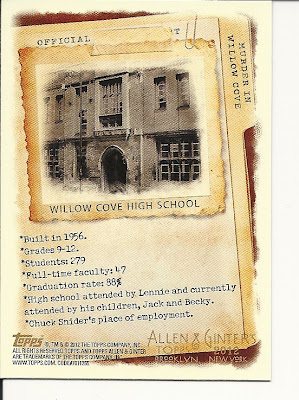 OFFICIAL
T
MURDER IN
WILLOW COVE
WILLOW COVE HIGH SCHOOL
*Built in 1956.
*Grades 9-12.
*Students: 279
*Full-time faculty: 47
*Graduation rate: 88%
*High school attended by Lennie and currently
attended by his children, Jack and Becky.
*Chuck Snider's place of employment.
ALLEN & GINTER'S
2012
BROOKLYN NEW YORK
Topps
®, TM & © 2012 THE TOPPS COMPANY, INC.
ALL RIGHTS RESERVED. TOPPS AND TOPPS ALLEN & GINTER
ARE TRADEMARKS OF THE TOPPS COMPANY, INC.
WWW.TOPPS.COM.